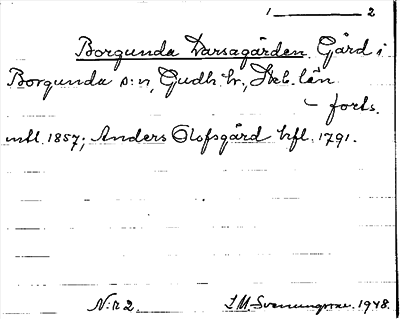 1 — 2
Borgunda Larsagården. Gård i
Borgunda s:n, Gudh. hr., Skb. län
– forts.
mtl. 1857; Anders Olofsgård hfl. 1791.
N:r 2. S.M. Svenungsson. 1948.